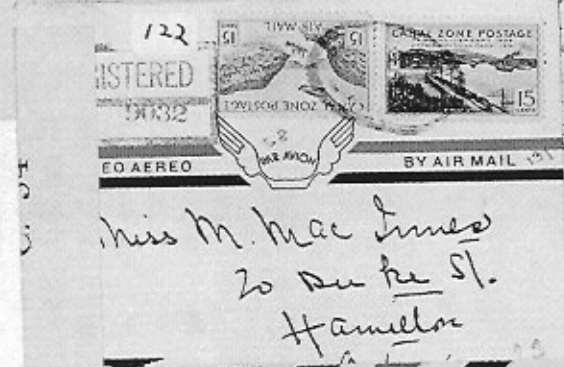 122
ISTERED
9032
15 AIR MAIL 15
CANAL ZONE POSTAGE
CANAL ZONE POSTAGE
15
CENTS
PAR AVION
EO AEREO
BY AIR MAIL
Miss M. Mac Innes
20 Duke St.
Hamilton